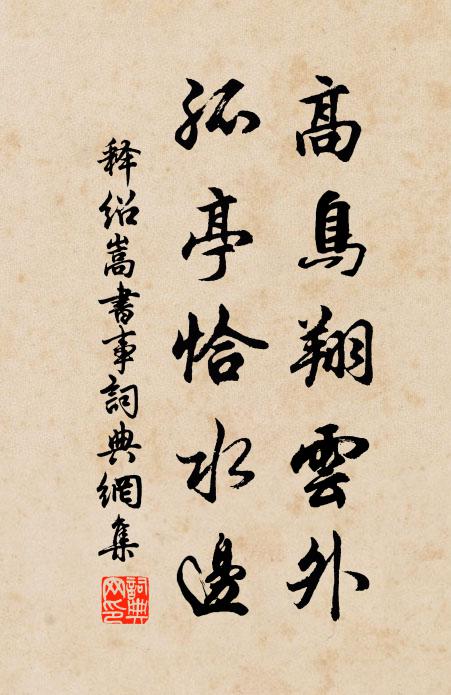 高鳥翔雲外
孤亭恰水邊
释绍嵩書事詞典網集
詞典網印